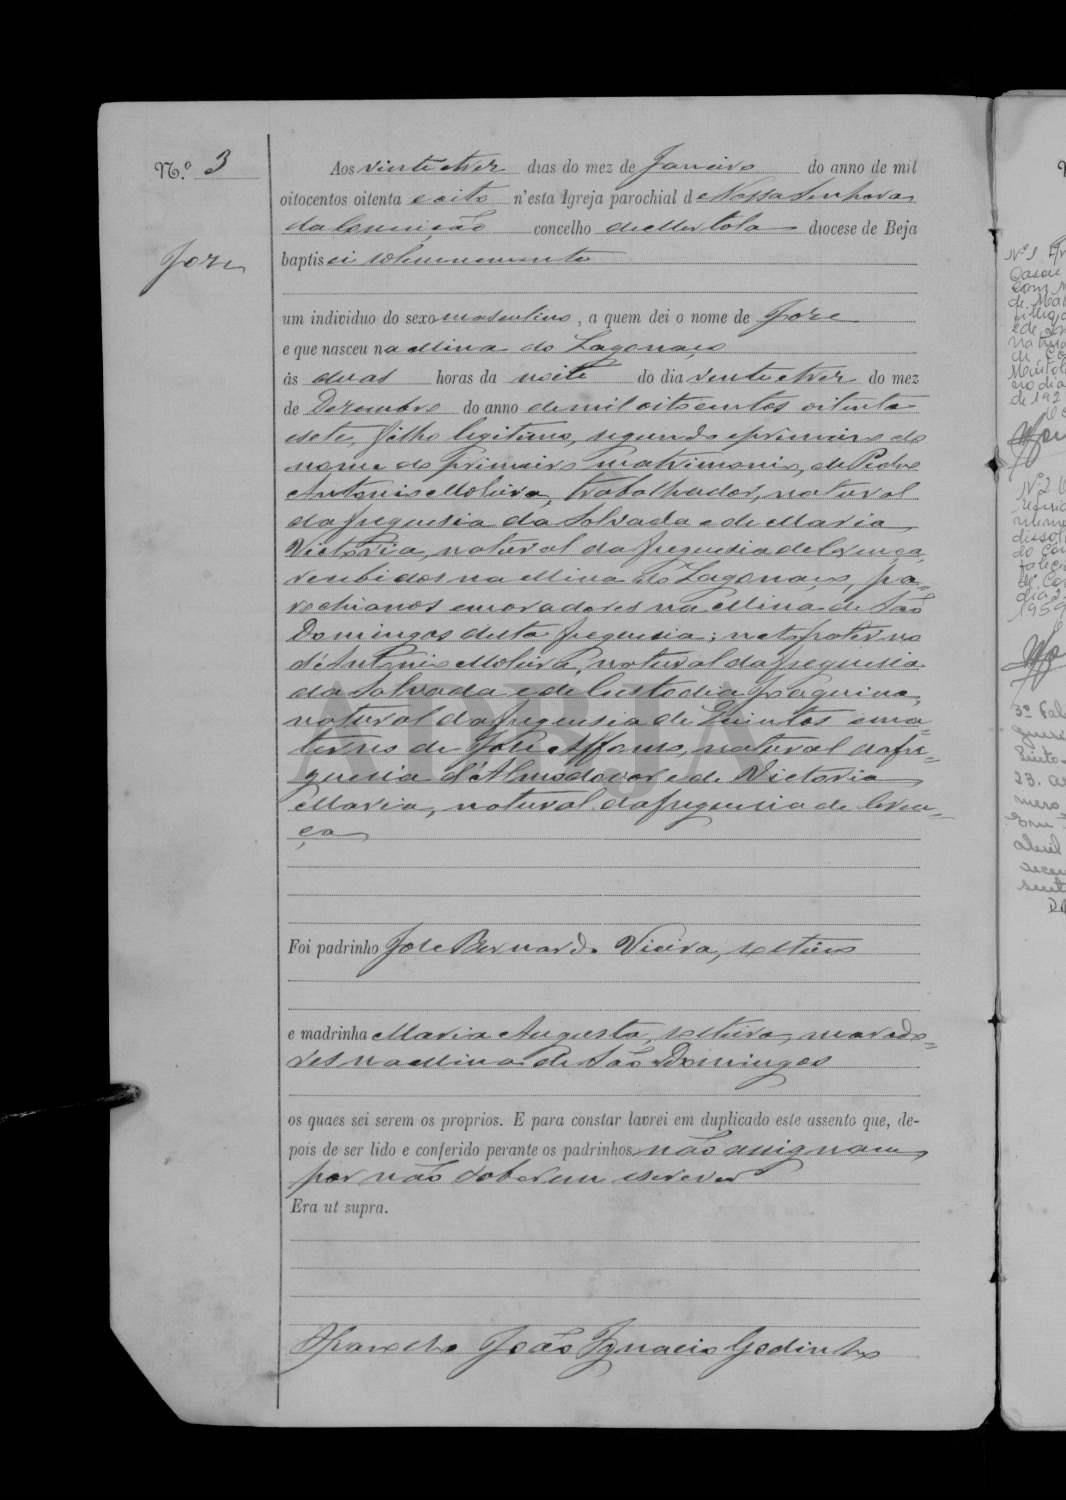 N.º 3
José
Aos vinte e trez dias do mez de Janeiro do anno de mil
oitocentos oitenta e oito n'esta Igreja parochial de Nossa Senhora
da Conceição concelho de Mertola diocese de Beja
baptisei solemnemente
um individuo do sexo masculino, a quem dei o nome de José
e que nasceu na Mina do
ás duas horas da noite do dia vinte e trez do mez
de Dezembro do anno de mil oitocentos oitenta
e sete, filho legitimo, segundo e primeiro do
nome do primeiro matrimonio, de Pedro
Antonio, trabalhador, natural
da freguesia da Salvada e de Maria
Victoria, natural da freguesia de Corvuga,
recebidos na Mina do, pa-
rochianos e moradores na Mina de São
Domingos desta freguesia; neto paterno
d'Antonio, natural da freguesia
da Salvada e de Custodia Joaquina,
natural da freguesia de Quintos e ma-
terno de José Affonso, natural da fre-
guesia d'Almodovar e de Victoria
Maria, natural da freguesia de
ça
Foi padrinho José Bernardo Vieira, solteiro
e madrinha Maria Augusta, solteira, morado-
res na Mina de São Domingos
os quaes sei serem os proprios. E para constar lavrei em duplicado este assento que, de-
pois de ser lido e conferido perante os padrinhos não assignam
por não saberem escrever
Era ut supra.
O Parocho João Ignacio Godinho
ADBJA
Nº 1
Nº 2
dissol
1959
3º Fal
23.
abril